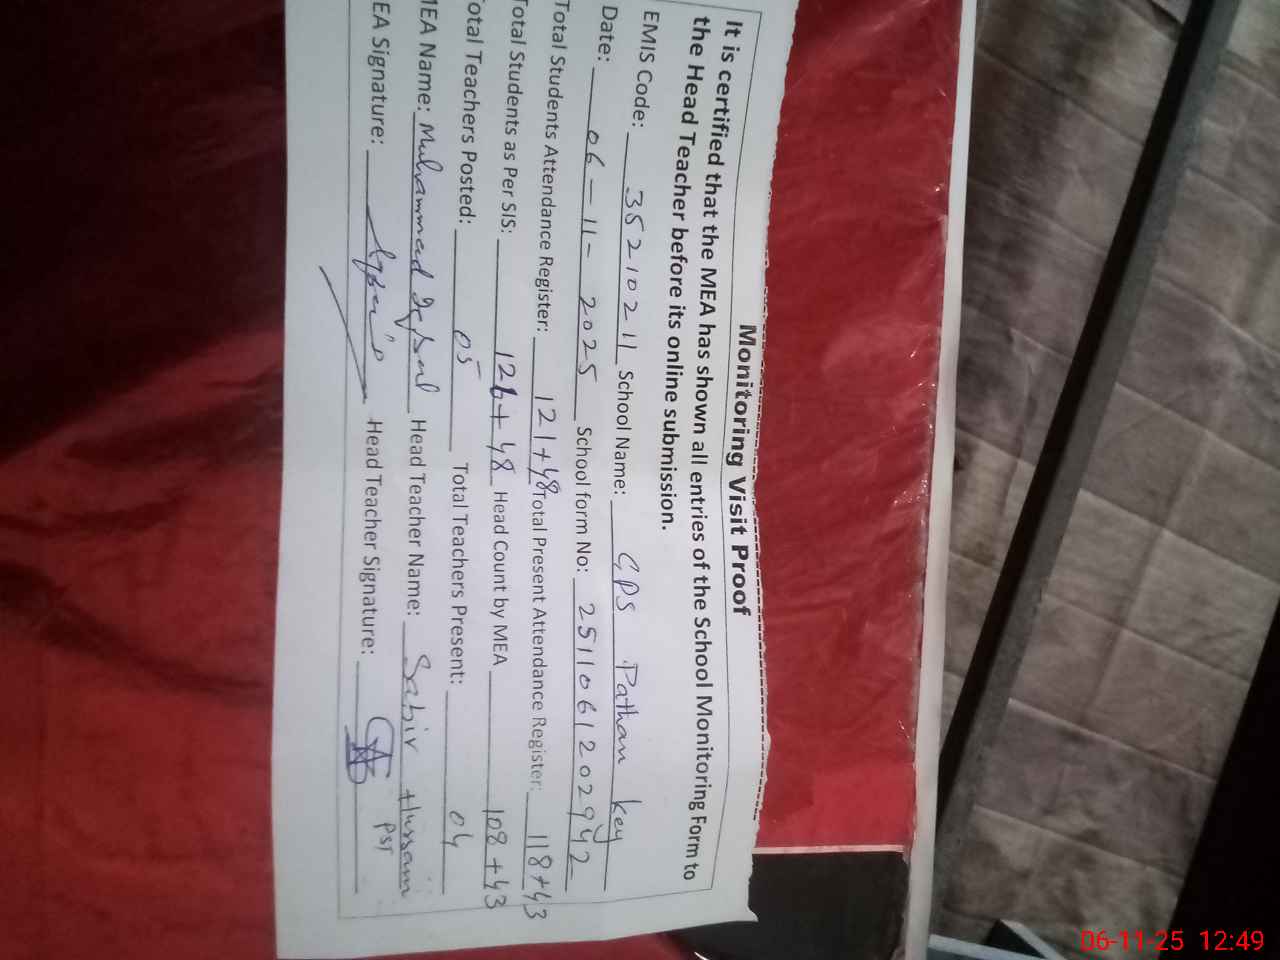 Monitoring Visit Proof
It is certified that the MEA has shown all entries of the School Monitoring Form to
the Head Teacher before its online submission.
EMIS Code: 35210211 School Name: GPS Pathan key
Date: 06-11-2025 School form No: 2511061202942
Total Students Attendance Register: 121+48 Total Present Attendance Register: 118+43
Total Students as Per SIS: 126+48 Head Count by MEA 108+43
Total Teachers Posted: 05 Total Teachers Present: 04
MEA Name: Muhammad Iqbal Head Teacher Name: Sabir Hussain
EA Signature: Head Teacher Signature: PST
06-11-25 12:49